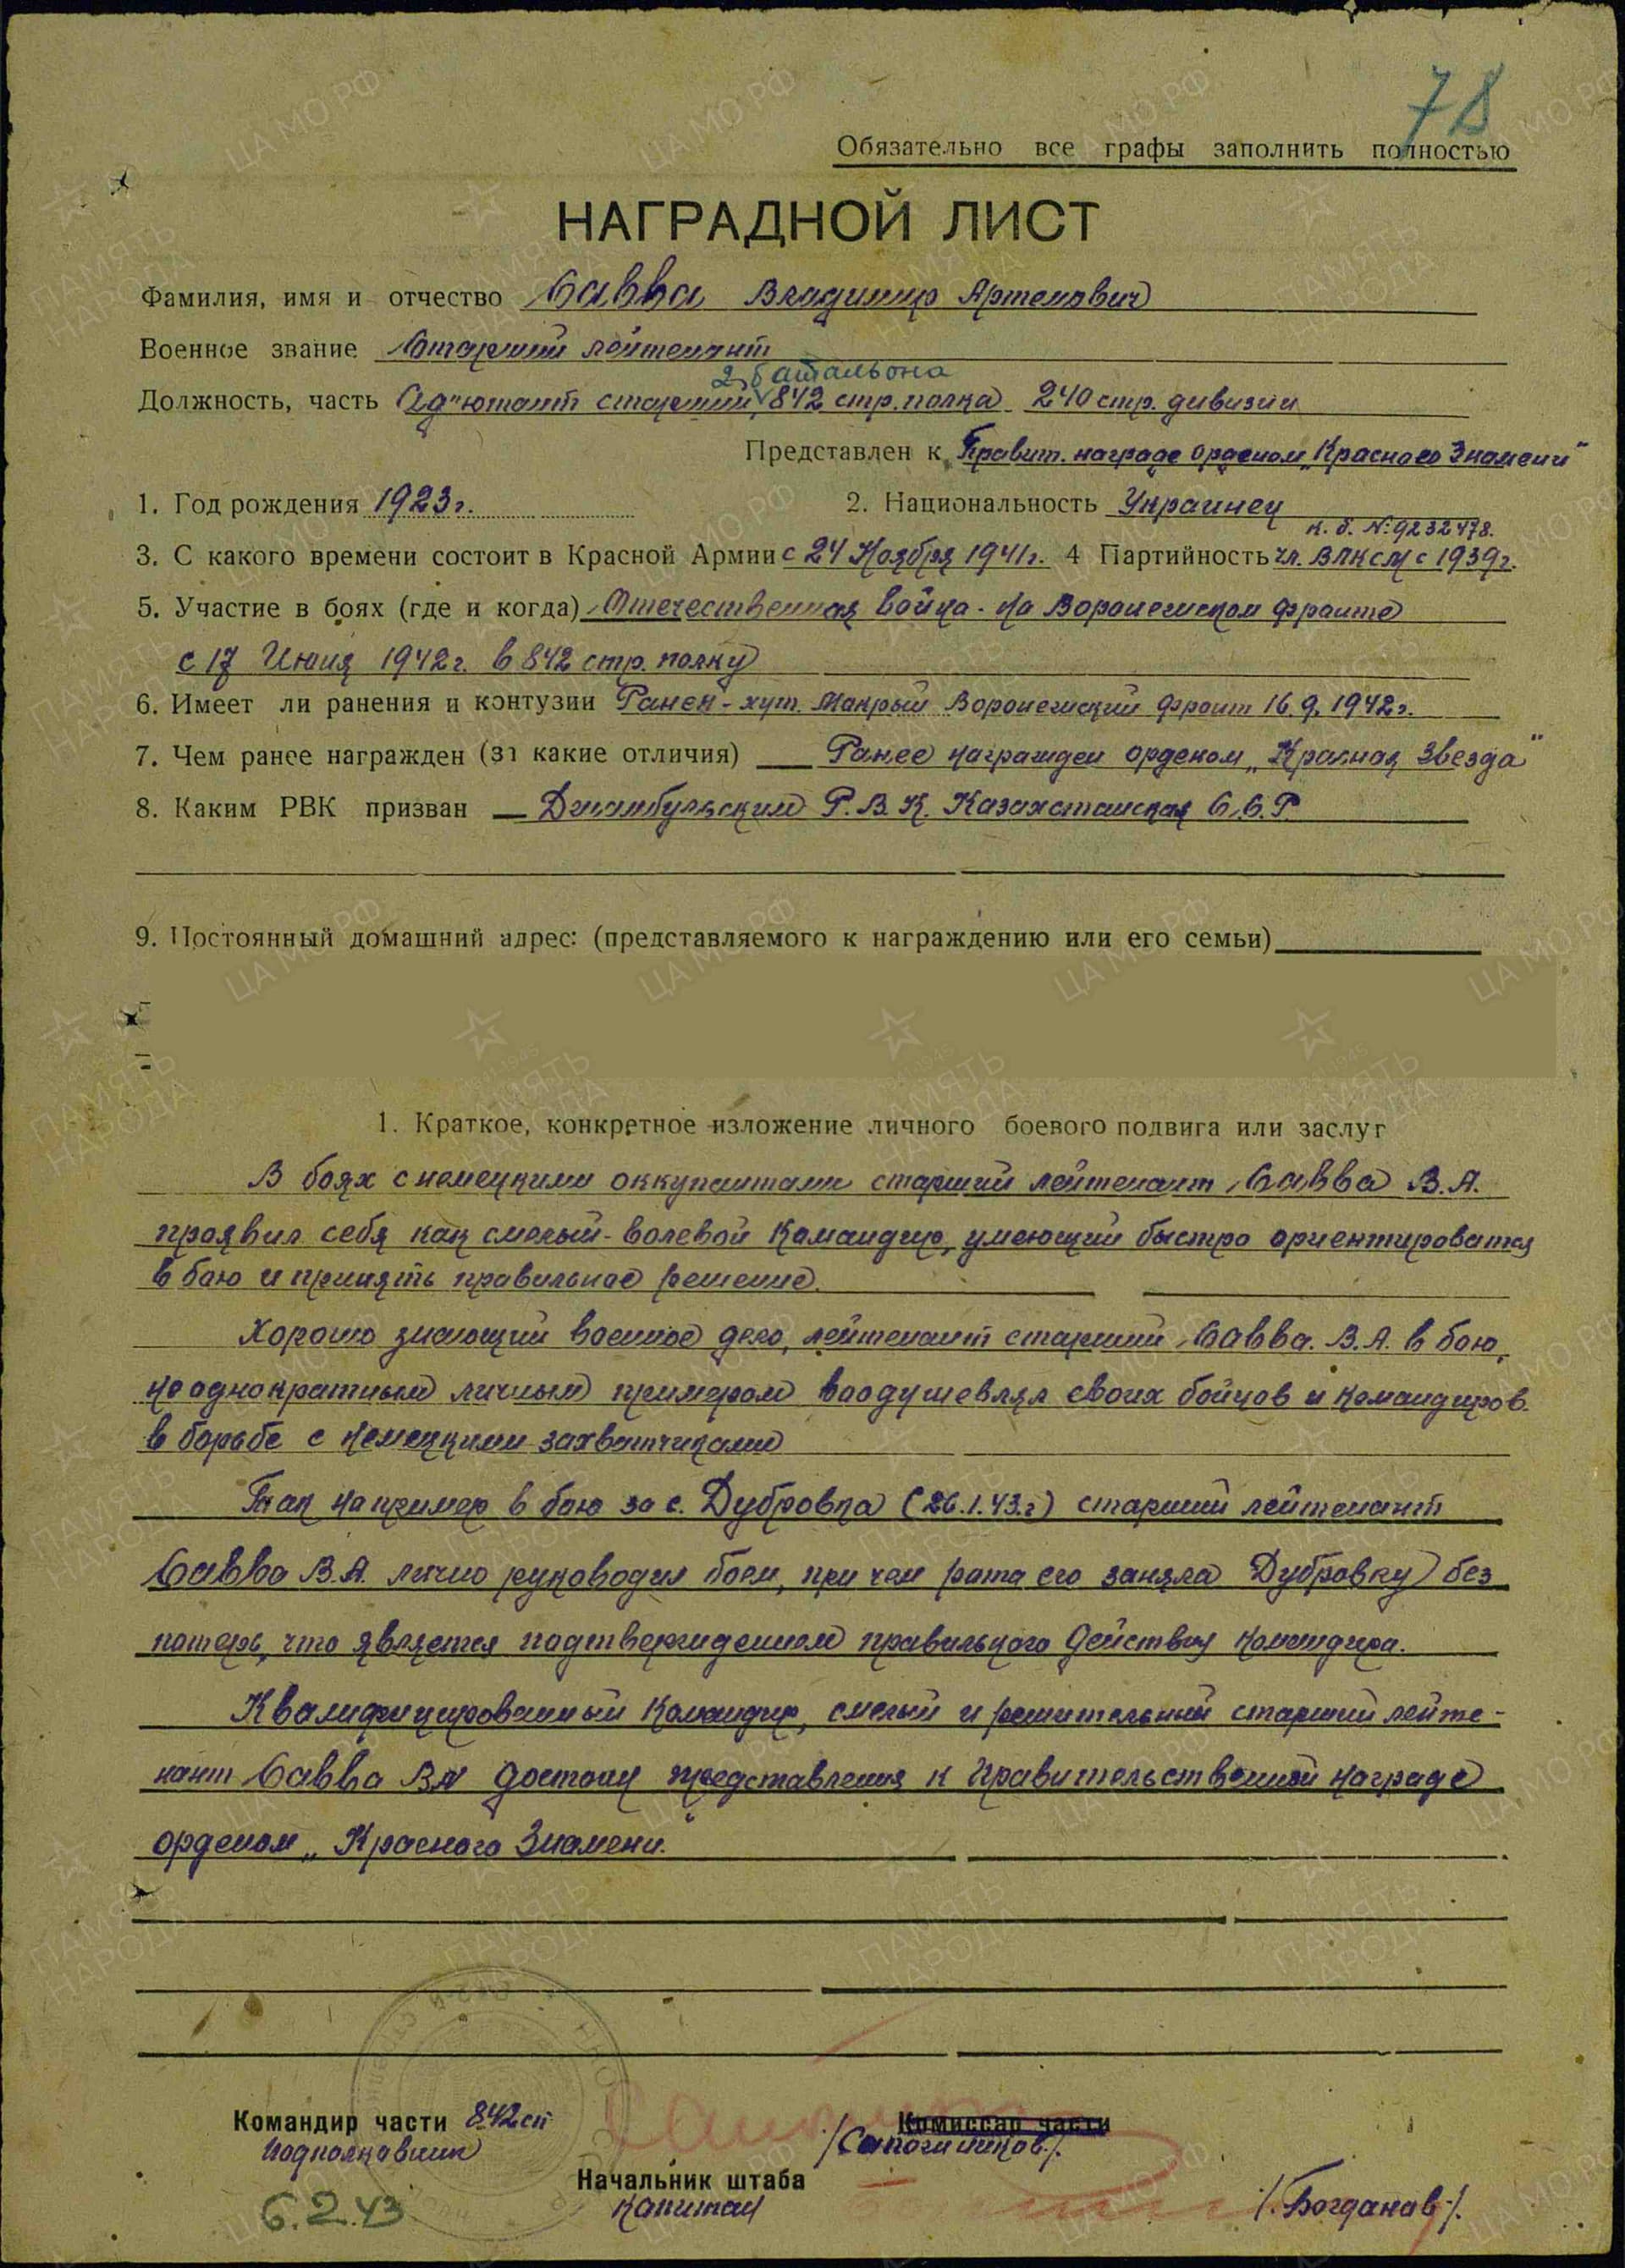 78
Обязательно все графы заполнить полностью
НАГРАДНОЙ ЛИСТ
Фамилия, имя и отчество Савва Владимир Артемович
Военное звание Старший лейтенант
2 батальона
Должность, часть Ад"ютант старший 842 стр. полка 240 стр. дивизии
Представлен к Правит. награде орденом „Красного Знамени"
1. Год рождения 1923г. 2. Национальность Украинец
к. б. №9232478.
3. С какого времени состоит в Красной Армии с 24 Ноября 1941г. 4 Партийность чл. ВЛКСМ с 1939г.
5. Участие в боях (где и когда) Отечественная война - на Воронежском фронте
с 17 Июня 1942г. в 842 стр. полку
6. Имеет ли ранения и контузии Ранен - хут. Мокрый Воронежский фронт 16.9.1942г.
7. Чем ранее награжден (за какие отличия) Ранее награжден орденом „Красная Звезда"
8. Каким РВК призван Джамбульским Р.В.К. Казахстанская С.С.Р.
9. Постоянный домашний адрес: (представляемого к награждению или его семьи)
1. Краткое, конкретное изложение личного боевого подвига или заслуг
В боях с немецкими оккупантами старший лейтенант Савва В.А.
проявил себя как смелый - волевой командир, умеющий быстро ориентироватся
в бою и принять правильное решение.
Хорошо знающий военное дело, лейтенант старший Савва. В.А. в бою,
неоднократным личным примером воодушевлял своих бойцов и командиров.
в борьбе с немецкими захватчиками
Так например в бою за с. Дубровка (26.1.43.г) старший лейтенант
Савва В.А. лично руководил боем, при чем рота его заняла Дубровку без
потерь, что является подтверждением правильного действия командира.
Квалифицированный командир, смелый и решительный старший лейте-
нант Савва ВА достоин представления к Правительственной награде
орденом „Красного Знамени."
Командир части 842сп Комиссар части
Подполковник /Сапожников./
Начальник штаба
Капитан /.Богданов/.
6.2.43